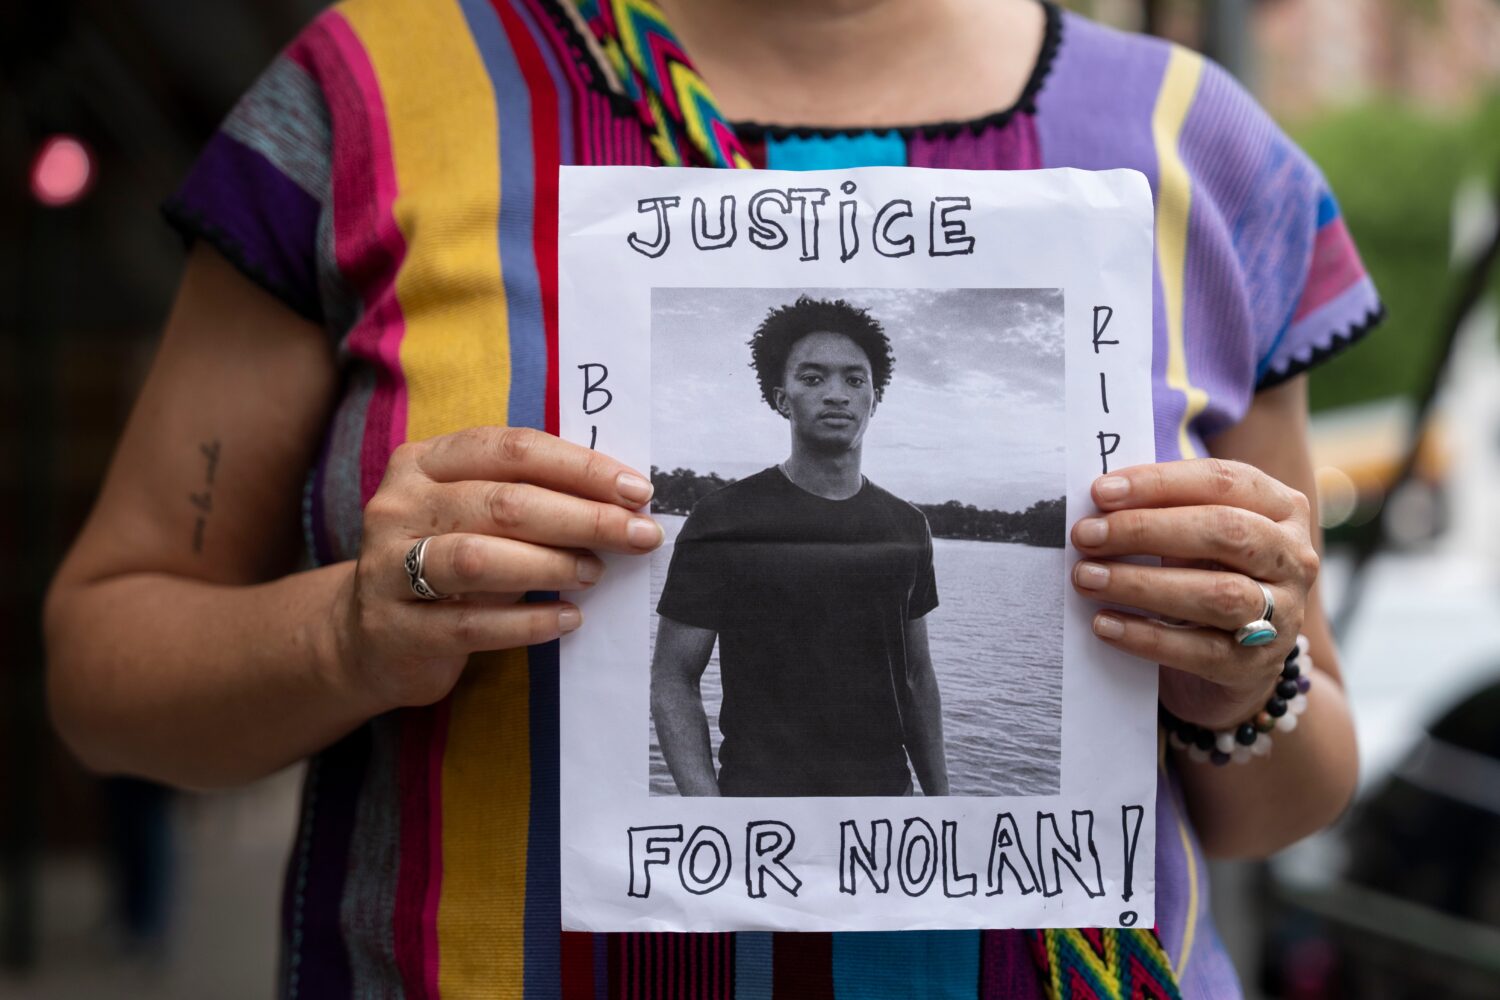 JUSTiCE
RIP
B
FOR NOLAN!